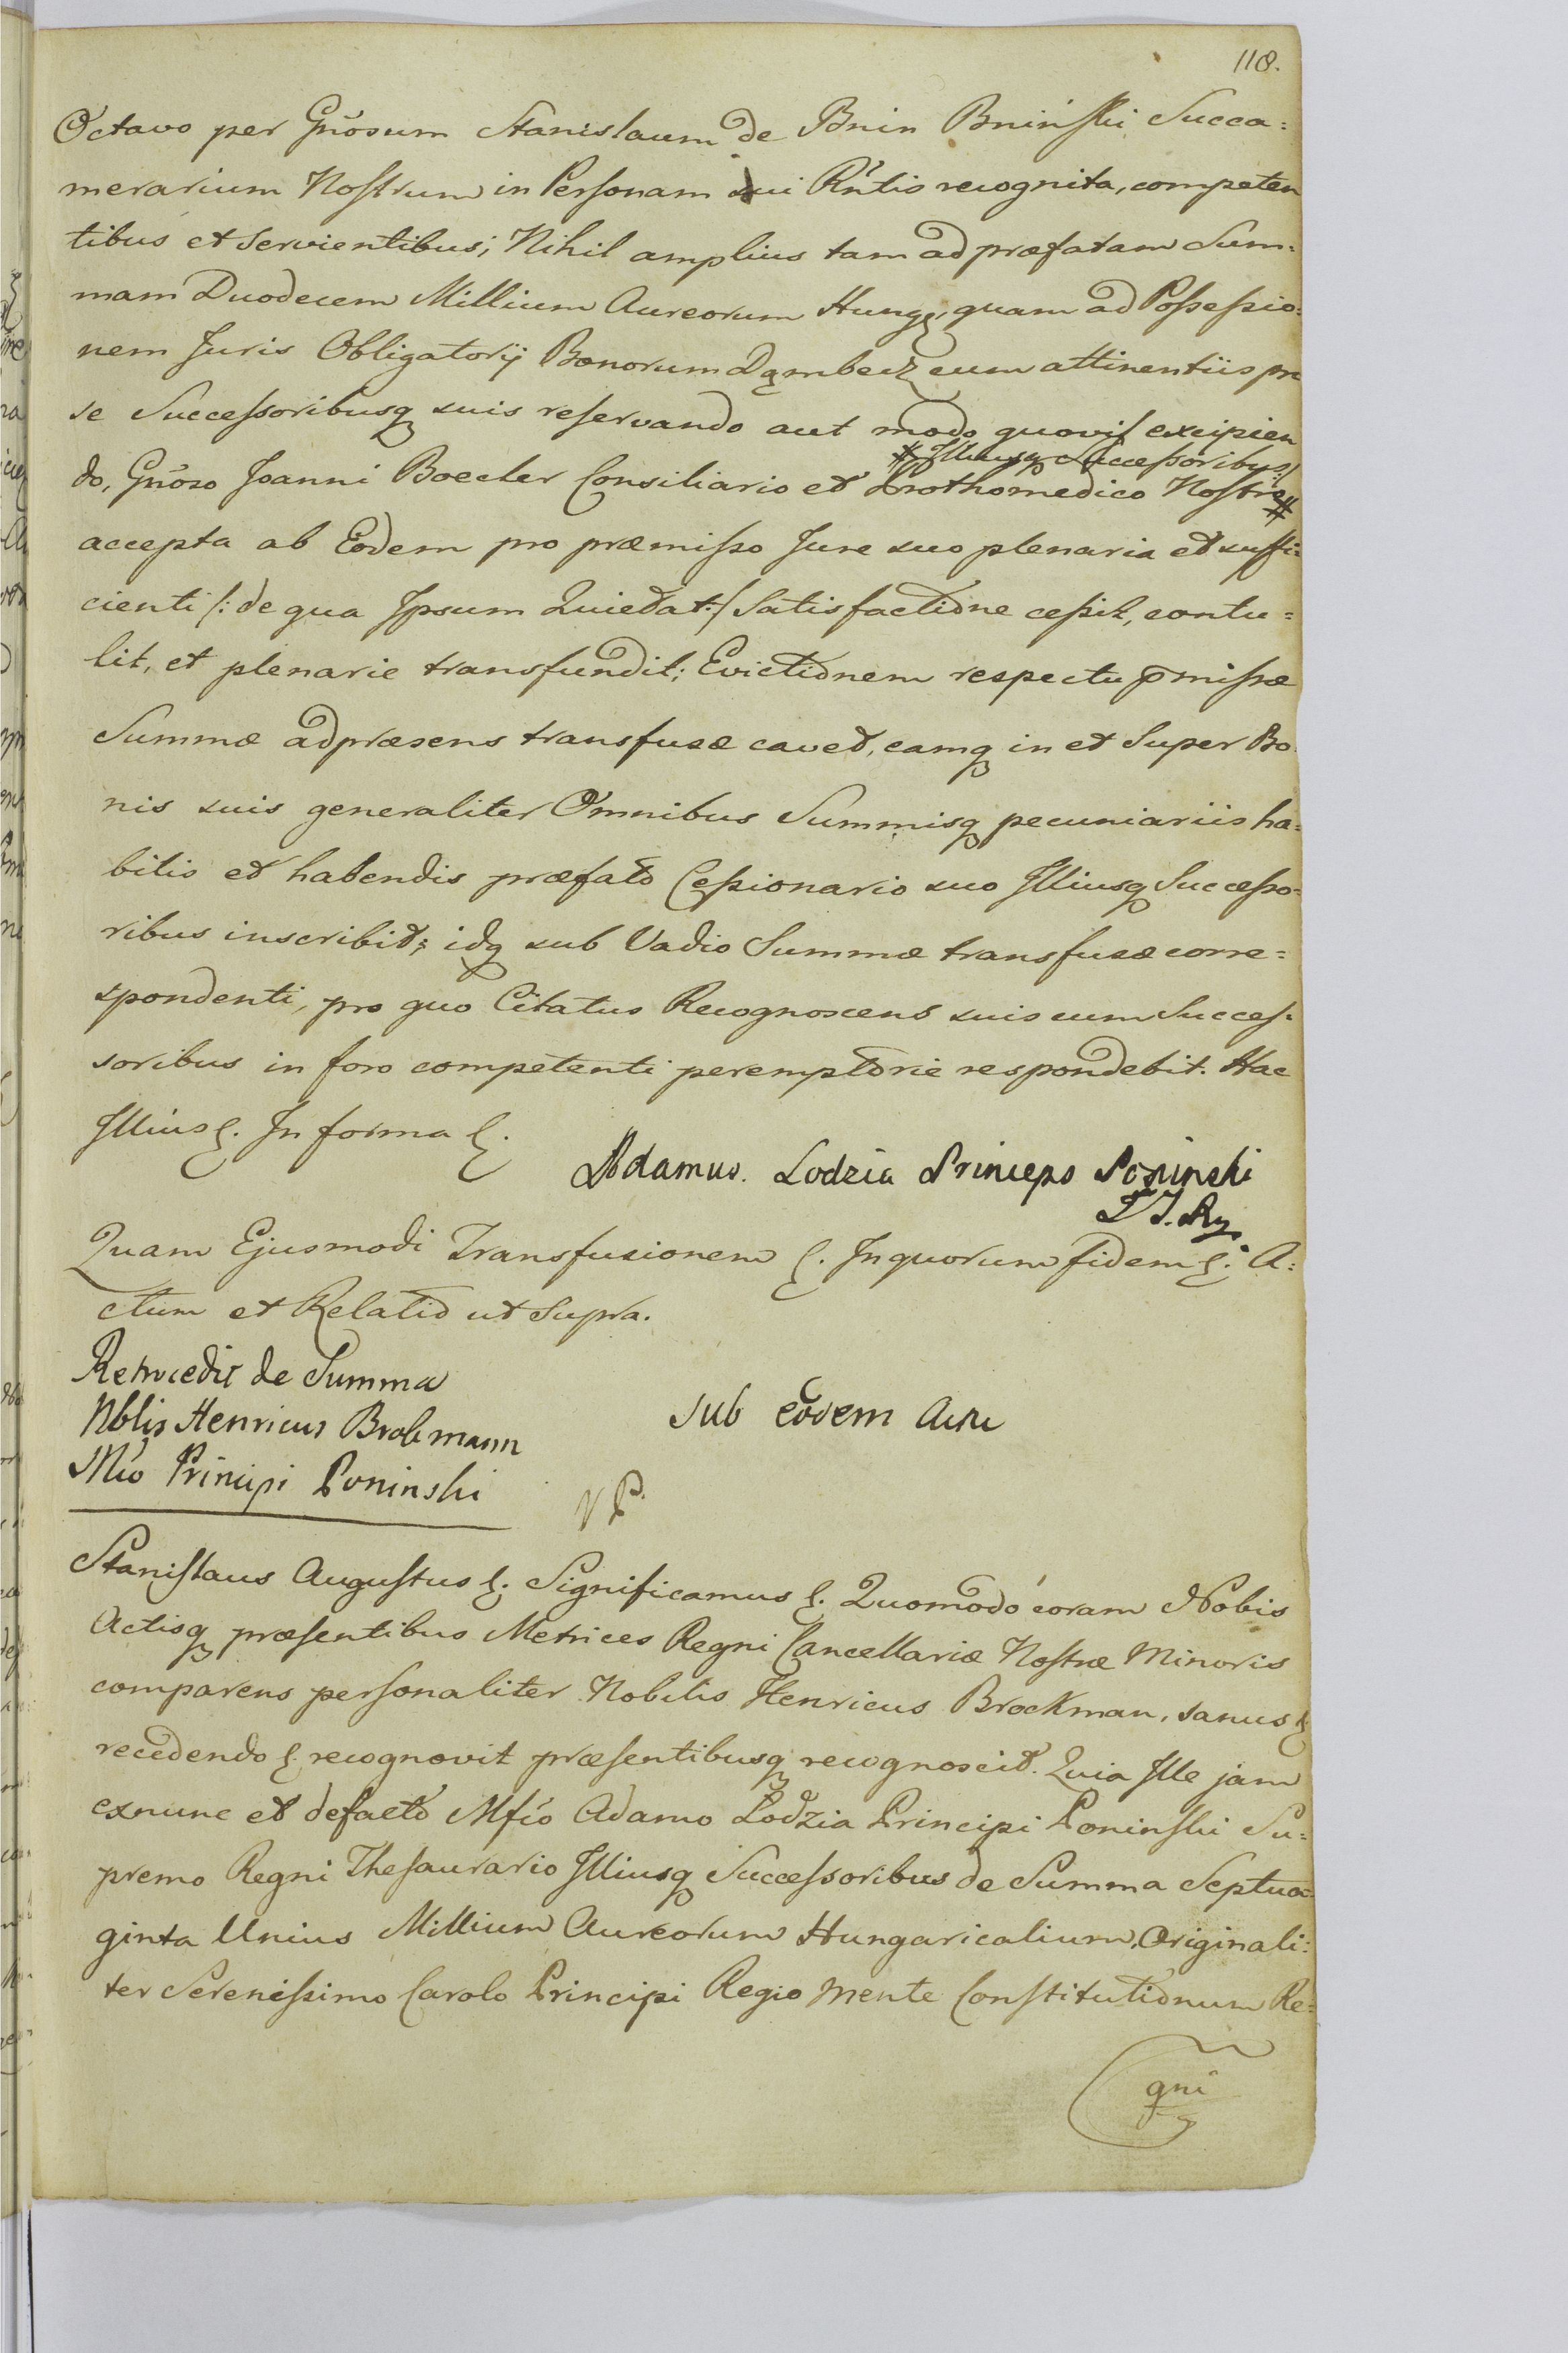 118.
Octavo per Gnősum Stanislaum de Bnin Bniński Succa:
merarium Nostrum in Personam sui Rńtis recognita, competen
tibus et Servientibus; Nihil amplius tam ad præfatam Sum:
mam Duodecem Millium Aureorum Hung, quam ad Possessio:
nem Juris Obligatorij Bonorum Dąmbecz cum attinentiis pro
se Successoribusq suis reservando aut modo quovis excipien
# Illiusq Successoribus/
do, Gnőso Joanni Boecler Consiliario et Prothomedico Nostro #
accepta ab Eodem pro præmisso Jure suo plenaria et suffi:
cienti /: de qua Ipsum Quietat :/ Satisfactione cessit, contu:
lit, et plenarie transfundit; Evictionem respectu p̄missæ
Summæ ad præsens transfusæ cavet, eamq in et Super Bo
nis suis generaliter Omnibus Summisq pecuniariis ha:
bitis et habendis præfato Cessionario suo Illiusq Successo:
ribus inscribit; idq sub Vadio Summæ transfusæ corre:
spondenti, pro quo Citatus Recognoscens suis cum Succes:
soribus in foro competenti peremptorie respondebit. Hac
Illius &. In forma &.
Adamus. Lodzia Princeps Poninski
Quam Ejusmodi Transfusionem &. In quorum fidem &. A:
ctum et Relatio ut Supra.
Retrocedit de Summa
Nblis Henricus Brokmann
Mfio Principi Poninski
Sub eodem Actu
VP.
Stanislaus Augustus &. Significamus &. Quomodo coram Nobis
Actisq præsentibus Metrices Regni Cancellariæ Nostræ Minoris
comparens personaliter Nobilis Henricus Brockman, sanus &
recedendo &. recognovit præsentibusq recognoscit. Quia Ille jam
exnunc et defacto Mfio Adamo Lodzia Principi Poninski Su:
premo Regni Thesaurario Illiusq Successoribus de Summa Septua:
ginta Unius Millium Aureorum Hungaricalium, Originali:
ter Serenissimo Carolo Principi Regio mente Constitutionum Re:
gni